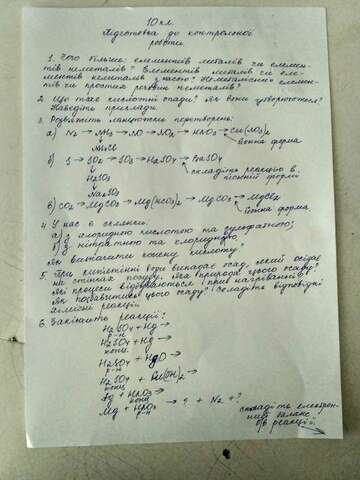 10 кл.
Підготовка до контрольної
роботи
1. Чого більше: елементів металів чи елемен-
тів неметалів? Елементів металів чи еле-
ментів неметалів з назвою? Неметалічних елемен-
тів чи простих речовин неметалів?
2. Що таке кислотні опади? Як вони утворюються?
Наведіть приклади.
3. Розв'яжіть ланцюжки перетворень:
а) N₂ → NH₃ → NO → NO₂ → HNO₃ → Cu(NO₃)₂
йонна форма
NH₄Cl
б) S → SO₂ → SO₃ → H₂SO₄ → BaSO₄
складіть реакцію в
йонній формі
H₂SO₃
Na₂SO₃
в) CO₂ → MgCO₃ → Mg(HCO₃)₂ → MgCO₃ → MgCl₂
йонна форма
4. У нас є склянки:
а) з хлоридною кислотою та сульфатною;
б) з нітратною та хлоридною.
Як визначити кожну кислоту?
5. При кипятінні води випадає осад, який осідає
на стінках посуду. Яка природа цього осаду?
Які процеси відбуваються при нагріванні?
Як позбавитися цього осаду? Складіть відповідні
хімічні реакції
6. Закінчіть реакції:
H₂SO₄ + Hg →
р-н
H₂SO₄ + Hg →
конц
H₂SO₄ + HgO →
р-н
H₂SO₄ + (OH)₂ →
конц
Ag + HNO₃ →
конц
Mg + HNO₃ → ? + N₂ + ?
р-н
складіть електрон-
ний баланс
о/в реакцій.